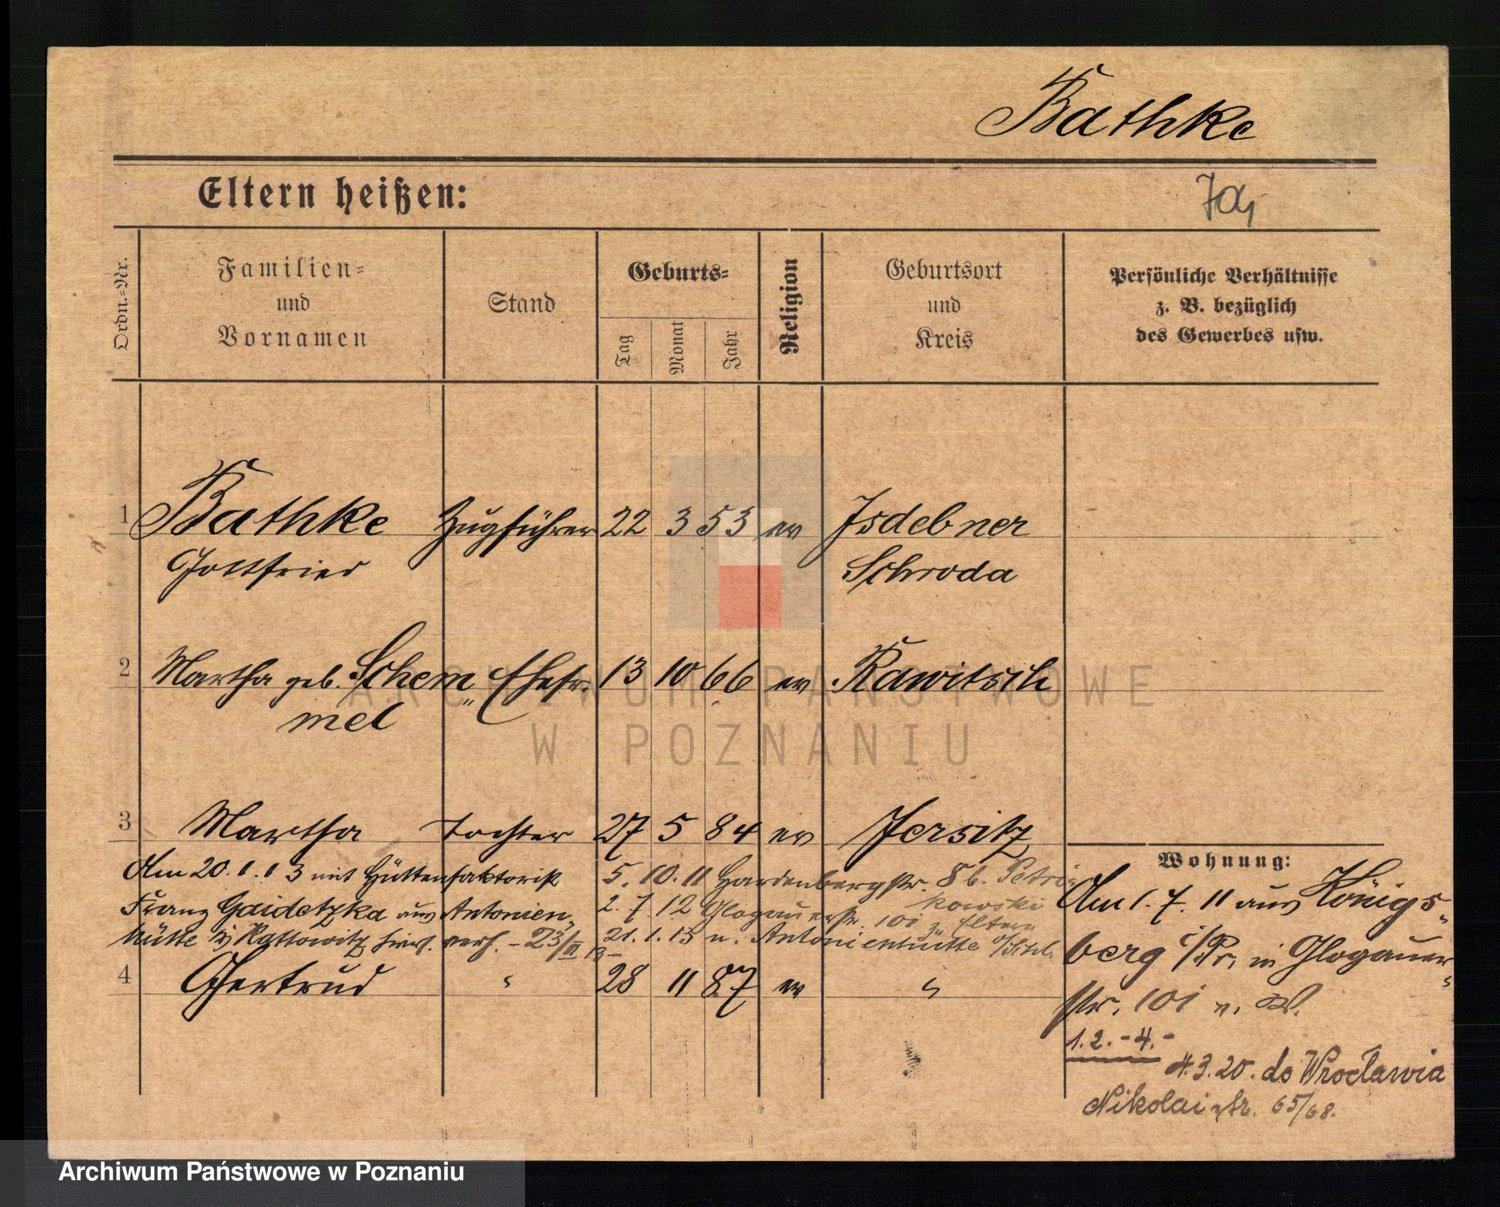 Bathke
Eltern heißen:
Ordn.-Nr.
Familien-
und
Vornamen
Stand
Geburts-
Tag
Monat
Jahr
Religion
Geburtsort
und
Kreis
Persönliche Verhältnisse
z. B. bezüglich
des Gewerbes usw.
1 Bathke Zugführer 22 3 53 ev Isdebner
Gottfried Schroda
2 Martha geb. Schem„ Ehefr. 13 10 66 ev Rawitsch
mel
3 Martha Tochter 27 5 84 ev Jersitz
Am 20.1.13 mit Hüttenfaktorist 5.10.11 Hardenbergstr. 8 b. Petri
kowski
Franz Gaidetzka aus Antonien„ 2.7.12 Glogauerstr. 101 z. Eltern
hütte Kattowitz verh. - 23/II 13 21.1.13 n. Antonienhütte
4 Gertrud " 28 11 87 ev "
Wohnung:
Am 1.7.11 aus Königs„
berg i/Pr. in Glogauer„
str. 101
1.2.-4.-
4.3.20. do Wrocławia
Nikolaistr. 65/68.
ARCHIWUM PAŃSTWOWE
W POZNANIU
Archiwum Państwowe w Poznaniu